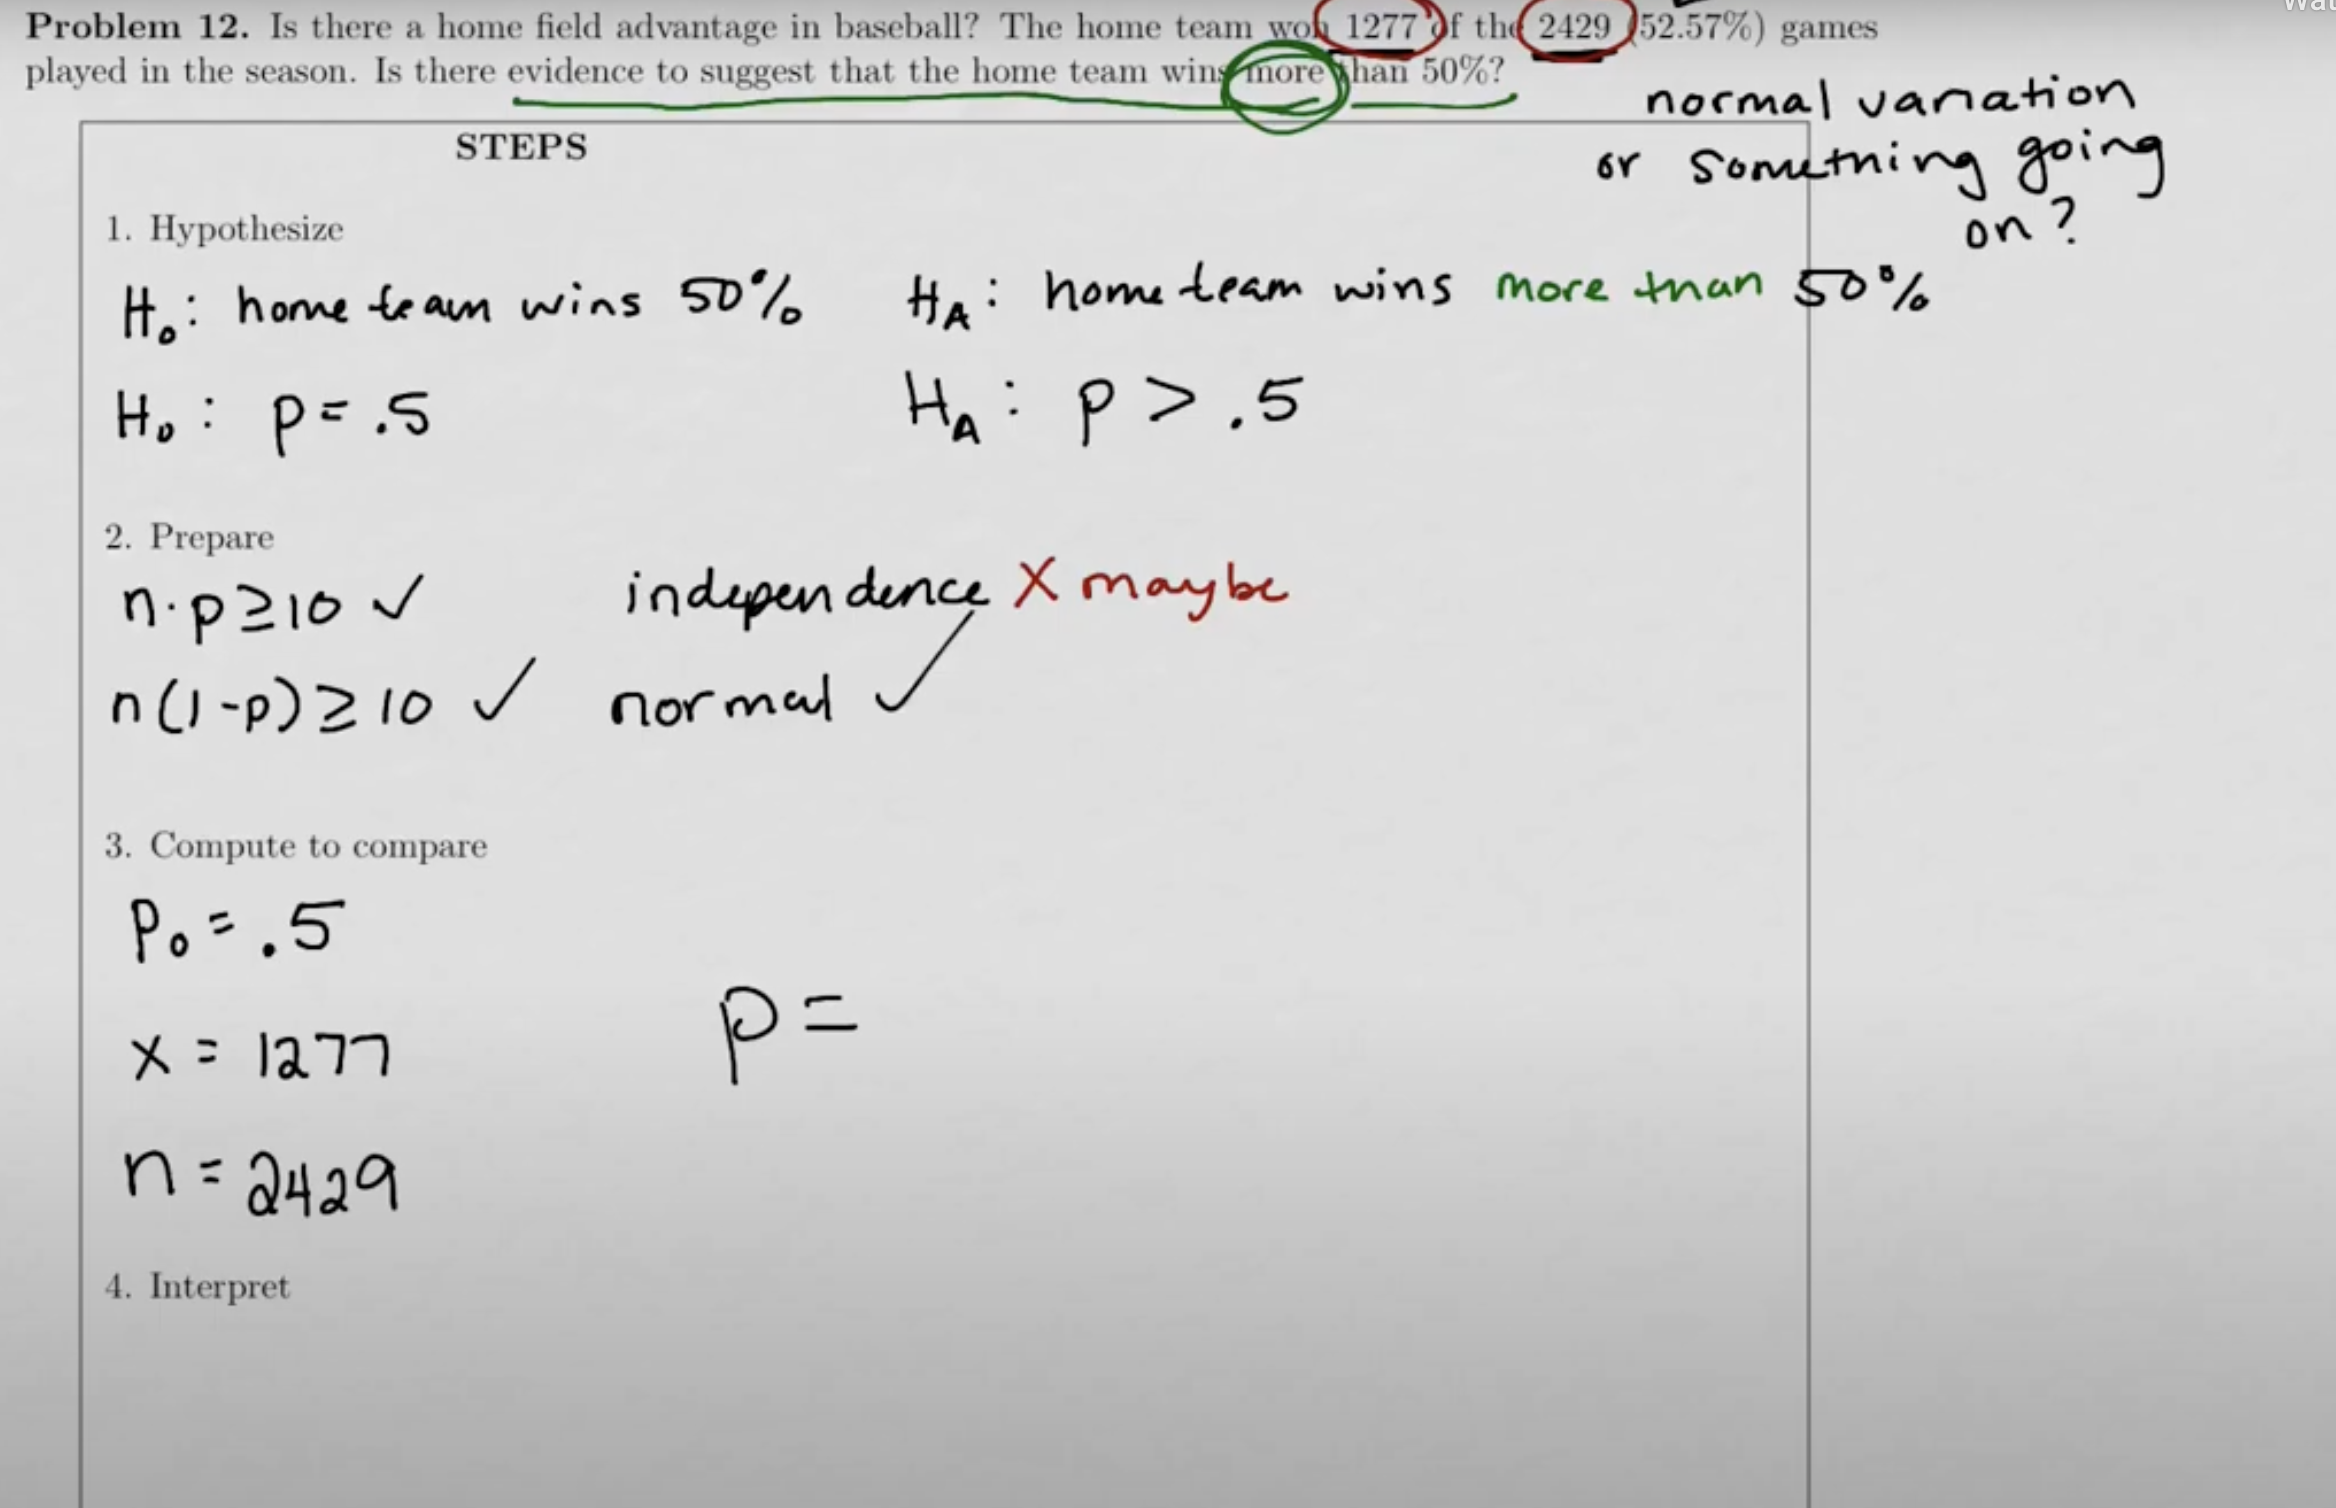 Wat
Problem 12. Is there a home field advantage in baseball? The home team won 1277 of the 2429 (52.57%) games
played in the season. Is there evidence to suggest that the home team wins more than 50%?
normal variation
or something going
on?
STEPS
1. Hypothesize
H₀: home team wins 50% H_A: home team wins more than 50%
H₀: p = .5 H_A: p > .5
2. Prepare
n·p≥10 ✓ independence X maybe
n(1-p)≥10 ✓ normal ✓
3. Compute to compare
P₀ = .5
x = 1277 p=
n = 2429
4. Interpret